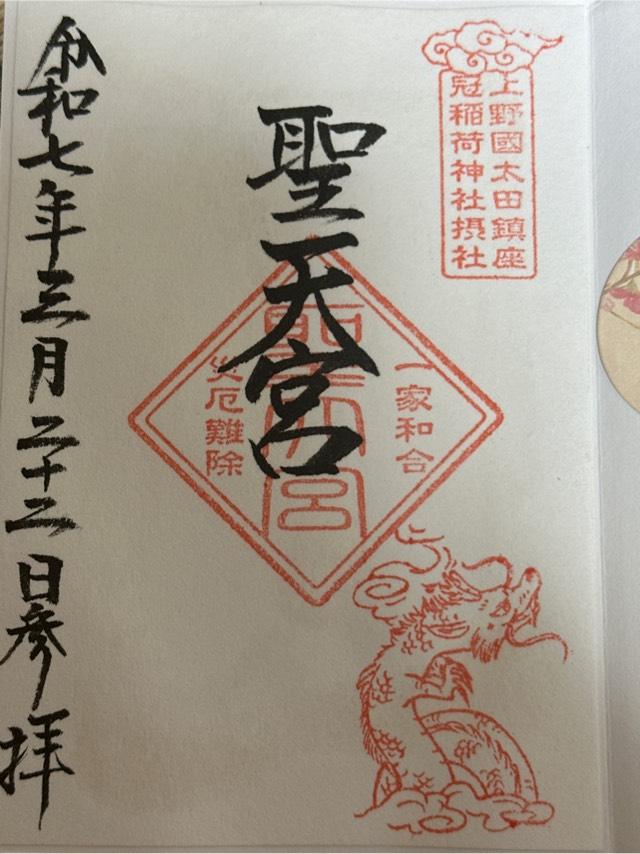 上野國太田鎮座
冠稲荷神社摂社
聖天宮
一家和合
聖天宮
災厄難除
令和七年三月二十二日参拝